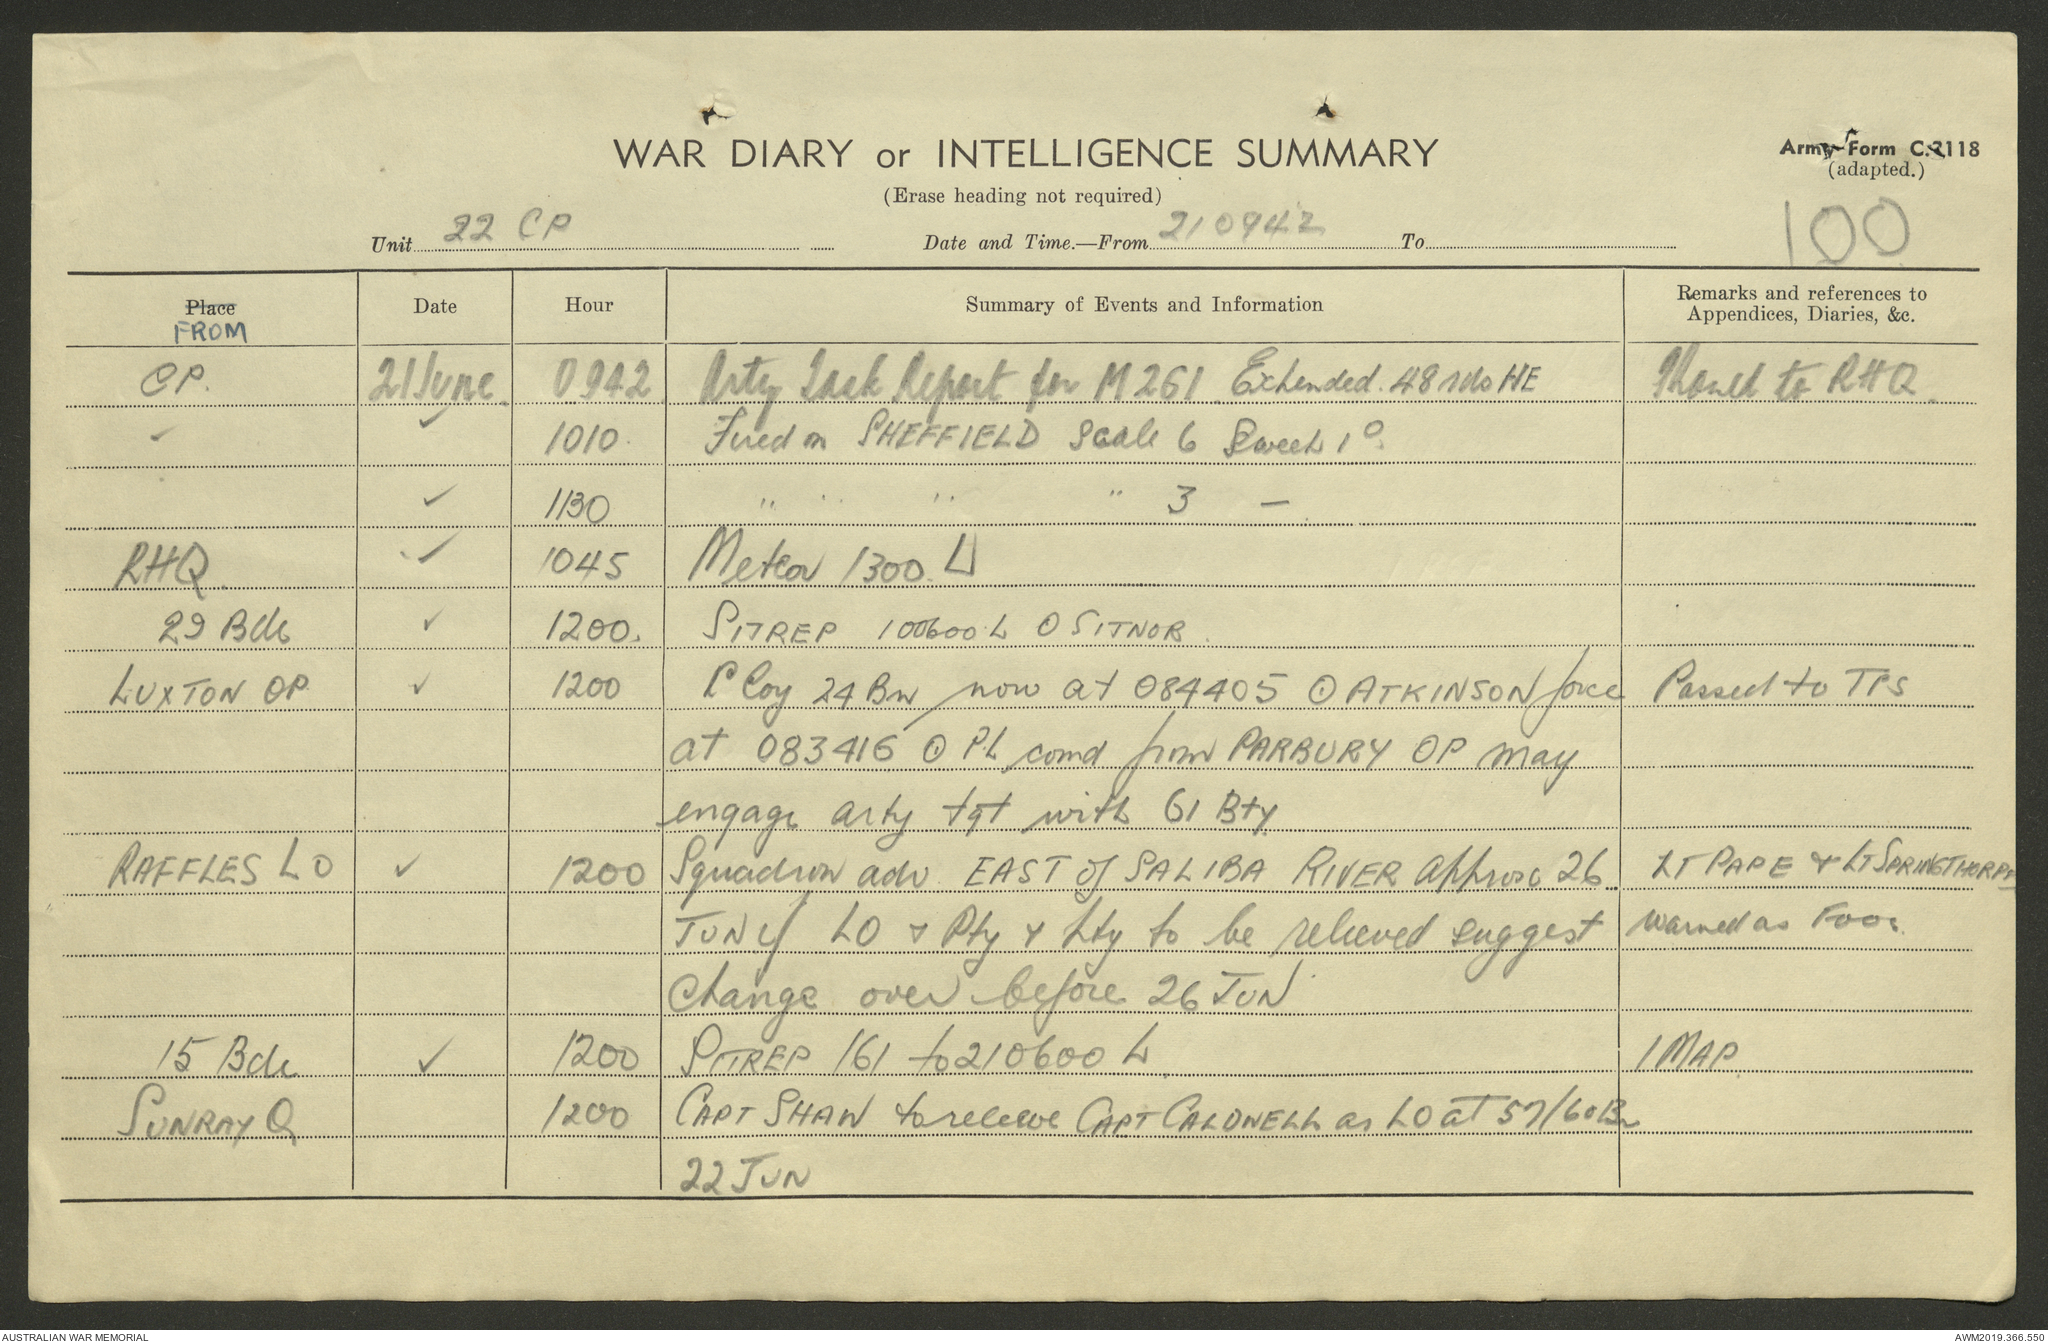 WAR DIARY or INTELLIGENCE SUMMARY
Army Form C.2118
(adapted.)
(Erase heading not required)
100
Unit 22 CP Date and Time.—From 210942 To
Place Date Hour Summary of Events and Information Remarks and references to
Appendices, Diaries, &c.
FROM
CP. 21 June 0942 Arty Task Report for M261 Extended. 48 rds HE Phoned to RHQ.
✓ ✓ 1010 Fired on SHEFFIELD Scale 6 Sweep 1°
✓ 1130 " " " " 3 —
RHQ. ✓ 1045 Meteor 1300 L
29 Bde ✓ 1200. SITREP 100600 L O SITNOR.
LUXTON OP ✓ 1200 Coy 24 Bn now at 084405 ⊙ ATKINSON force Passed to TPS
at 083416 ⊙ PL comd from PARBURY OP may
engage arty tgt with 61 Bty
RAFFLES LO ✓ 1200 Squadron adv. EAST of SALIBA RIVER approx 26 LT PAPE & LT SPRINGTHORPE
JUN LO & Pty & Pty to be relieved suggest warned as Foos.
change over before 26 JUN
15 Bde ✓ 1200 SITREP 161 to 210600 L 1 MAP
SUNRAY Q 1200 CAPT SHAW to releive CAPT CALDWELL as LO at 57/60 Bn
22 JUN
AUSTRALIAN WAR MEMORIAL AWM2019.366.550